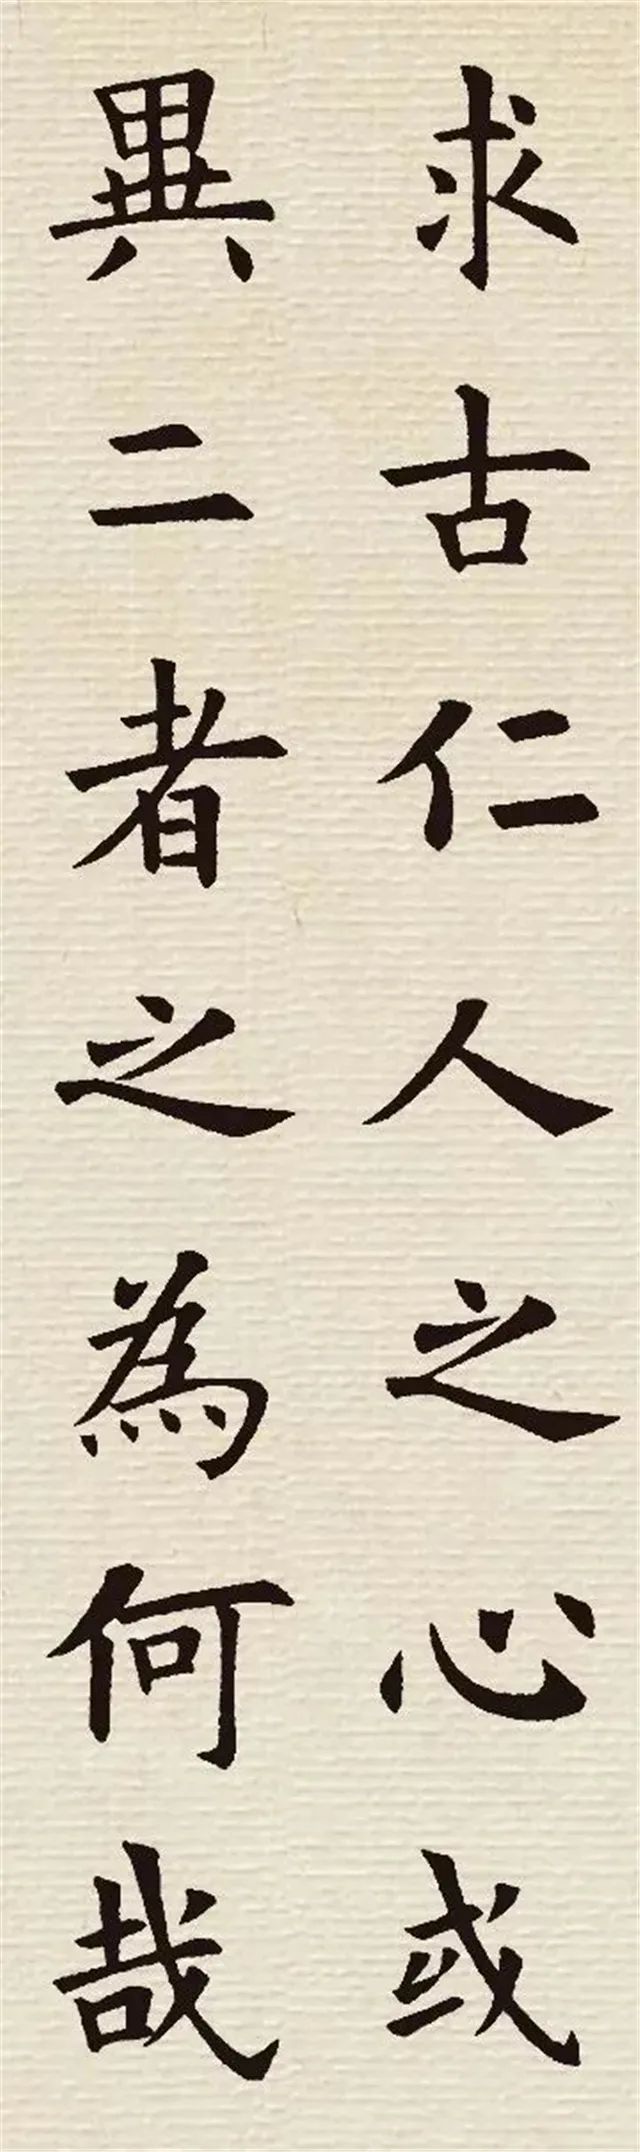 求古仁人之心或
異二者之為何哉